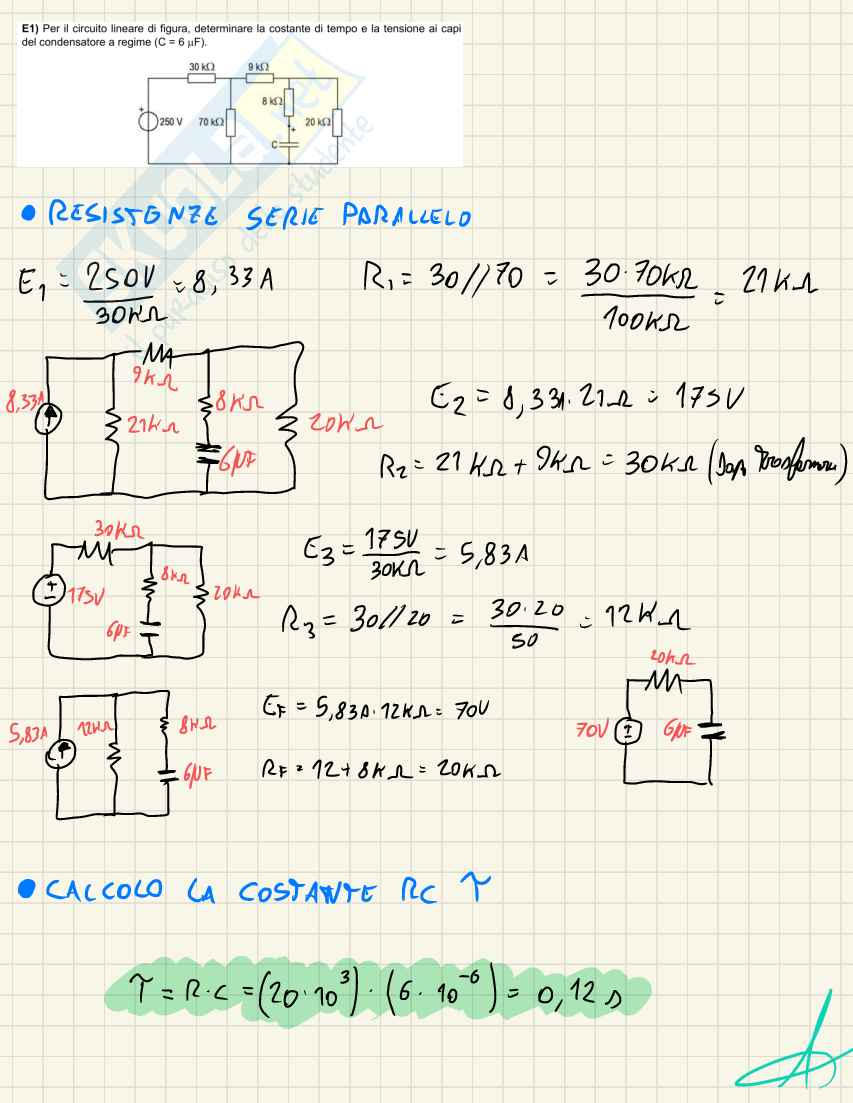 E1) Per il circuito lineare di figura, determinare la costante di tempo e la tensione ai capi
del condensatore a regime (C = 6 μF).
30 kΩ 9 kΩ
8 kΩ
+
250 V 70 kΩ 20 kΩ
+
C
SKUOLA.net
il paradiso dello studente
• RESISTENZE SERIE PARALLELO
E₁ = 250V/30KΩ = 8,33A
R₁ = 30//70 = 30·70KΩ/100KΩ = 21KΩ
9KΩ
8,33A 21KΩ 8KΩ 20KΩ
6μF
E₂ = 8,33A·21Ω = 175V
R₂ = 21KΩ + 9KΩ = 30KΩ (
30KΩ
175V 8KΩ 20KΩ
6μF
E₃ = 175V/30KΩ = 5,83A
R₃ = 30//20 = 30·20/50 = 12KΩ
5,83A 12KΩ 8KΩ
6μF
EF = 5,83A·12KΩ = 70V
RF = 12+8KΩ = 20KΩ
20KΩ
70V 6μF
• CALCOLO LA COSTANTE RC τ
τ = R·C = (20·10³)·(6·10⁻⁶) = 0,12 s